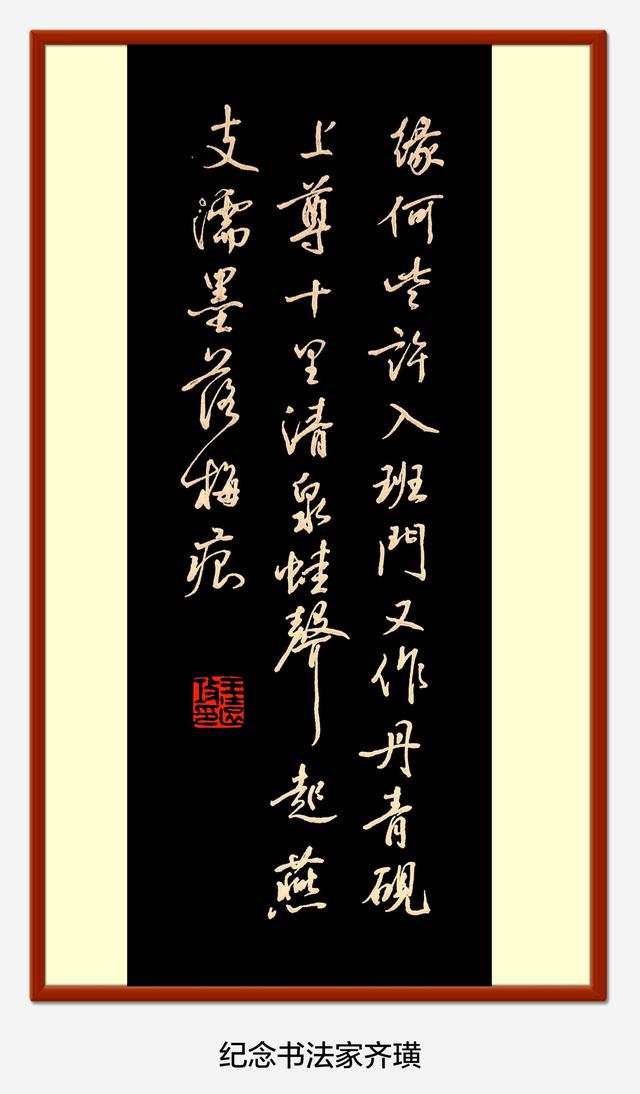 緣何些許入班門又作丹青硯
上尊十里清泉蛙聲起燕
支濡墨落梅痕
纪念书法家齐璜